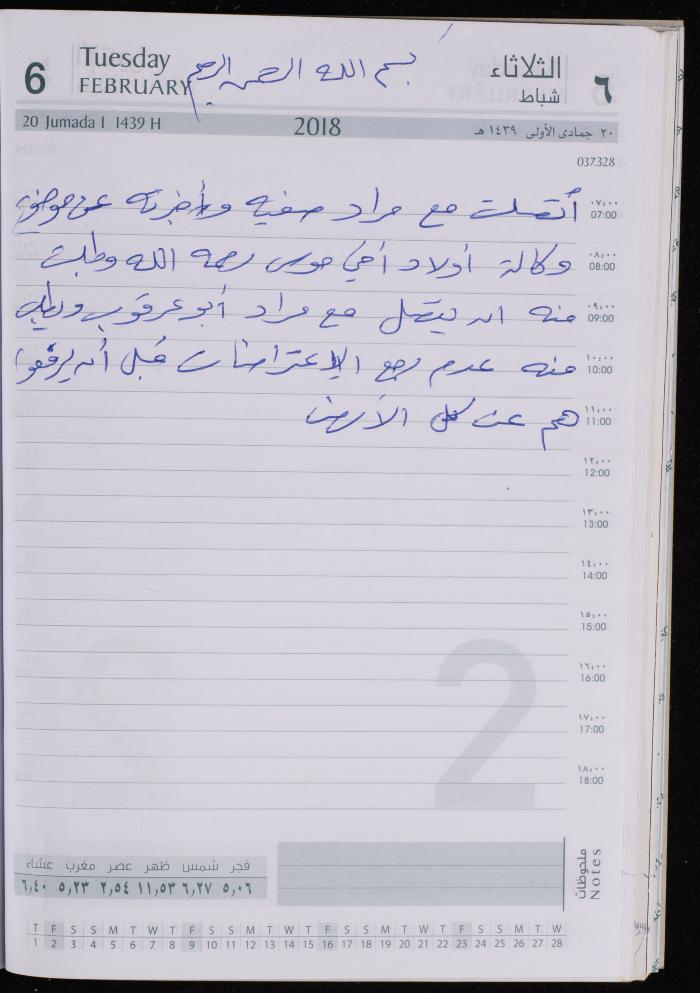 6
Tuesday
FEBRUARY
بسم الله الرحمن الرحيم
الثلاثاء
شباط
٦
20 Jumada I 1439 H
2018
٢٠ جمادى الأولى ١٤٣٩ هـ
037.328
أتصلت مع مراد صفيه وأخبرته عن موضوع
٠٧:٠٠
07:00
وكالة أولاد أخي موسى رحمه الله وطلبت
٠٨:٠٠
08:00
منه ان يتصل مع مراد أبو عرقوب ويطلب
٠٩:٠٠
09:00
منه عدم رجع الإعتراضات قبل أن يرفعوا
١٠:٠٠
10:00
هم عن كل الأرض
١١:٠٠
11:00
١٢:٠٠
12:00
١٣:٠٠
13:00
١٤:٠٠
14:00
١٥:٠٠
15:00
١٦:٠٠
16:00
١٧:٠٠
17:00
١٨:٠٠
18:00
2
فجر شمس ظهر عصر مغرب عشاء
٥,٠٦ ٦,٢٧ ١١,٥٣ ٢,٥٤ ٥,٢٣ ٦,٤٠
ملحوظات
Notes
T F S S M T W T F S S M T W T F S S M T W T F S S M T W
1 2 3 4 5 6 7 8 9 10 11 12 13 14 15 16 17 18 19 20 21 22 23 24 25 26 27 28